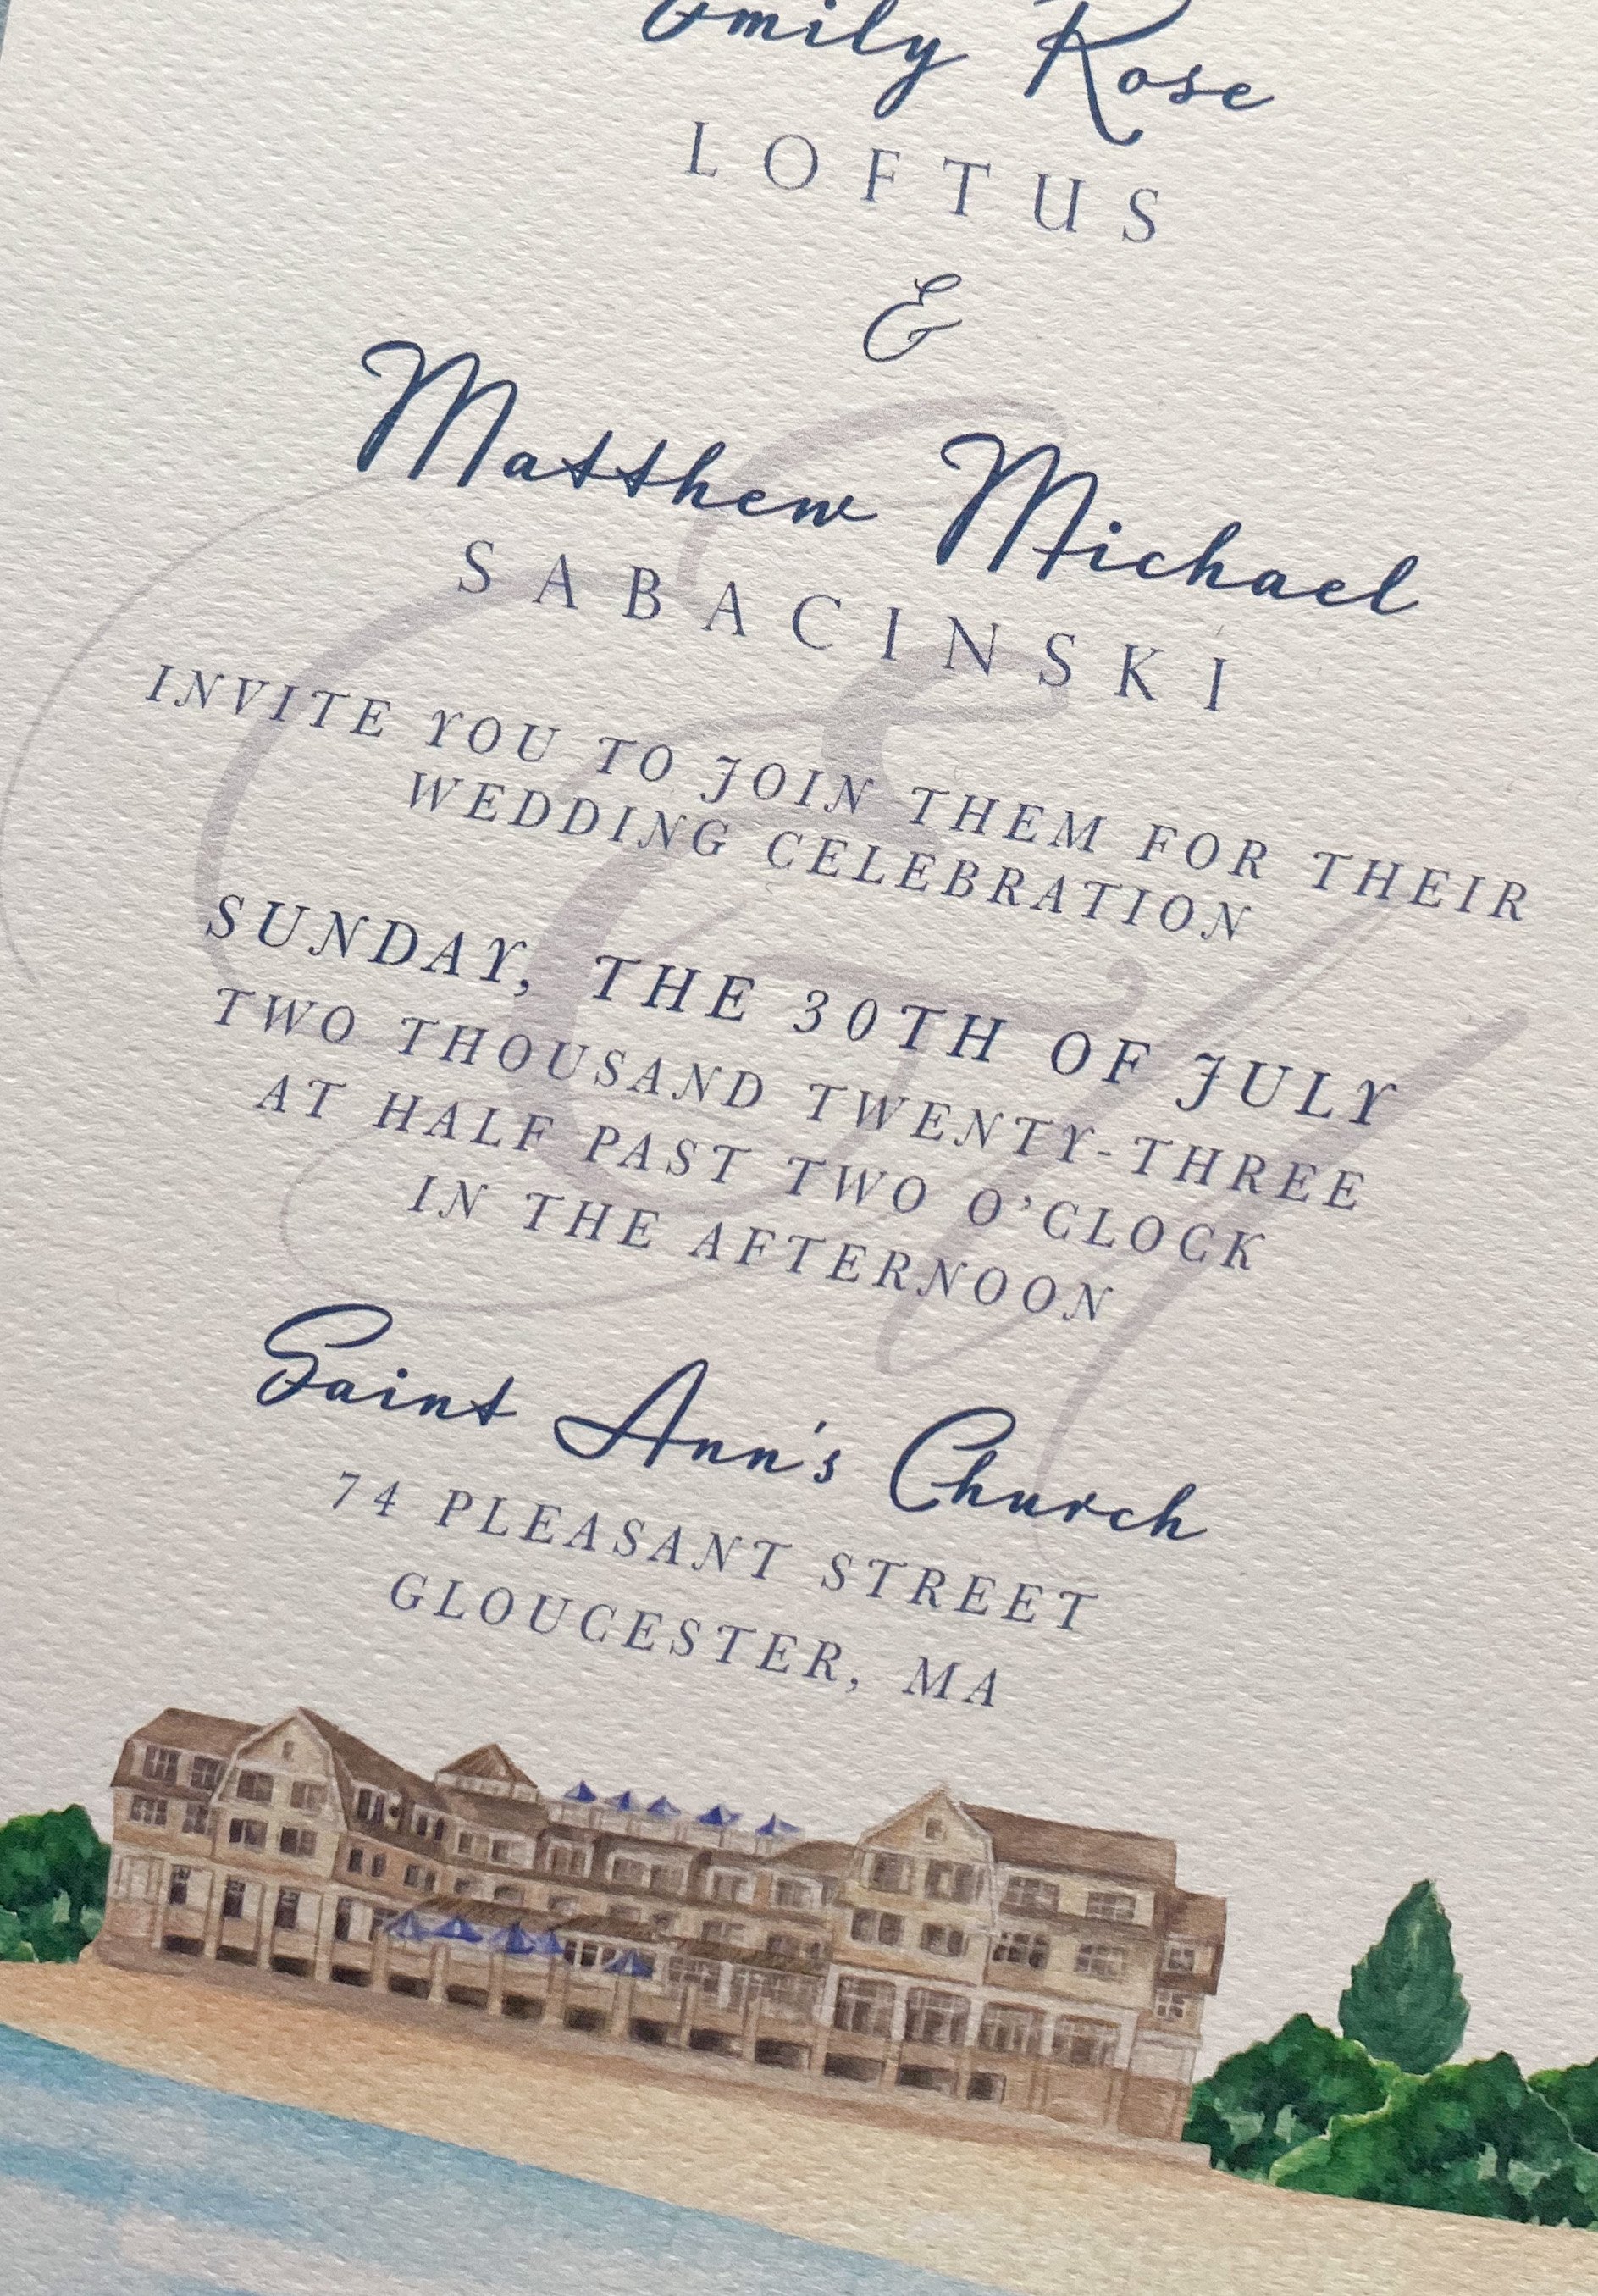 Emily Rose
LOFTUS
&
Matthew Michael
SABACINSKI
INVITE YOU TO JOIN THEM FOR THEIR
WEDDING CELEBRATION
SUNDAY, THE 30TH OF JULY
TWO THOUSAND TWENTY-THREE
AT HALF PAST TWO O'CLOCK
IN THE AFTERNOON
Saint Ann's Church
74 PLEASANT STREET
GLOUCESTER, MA